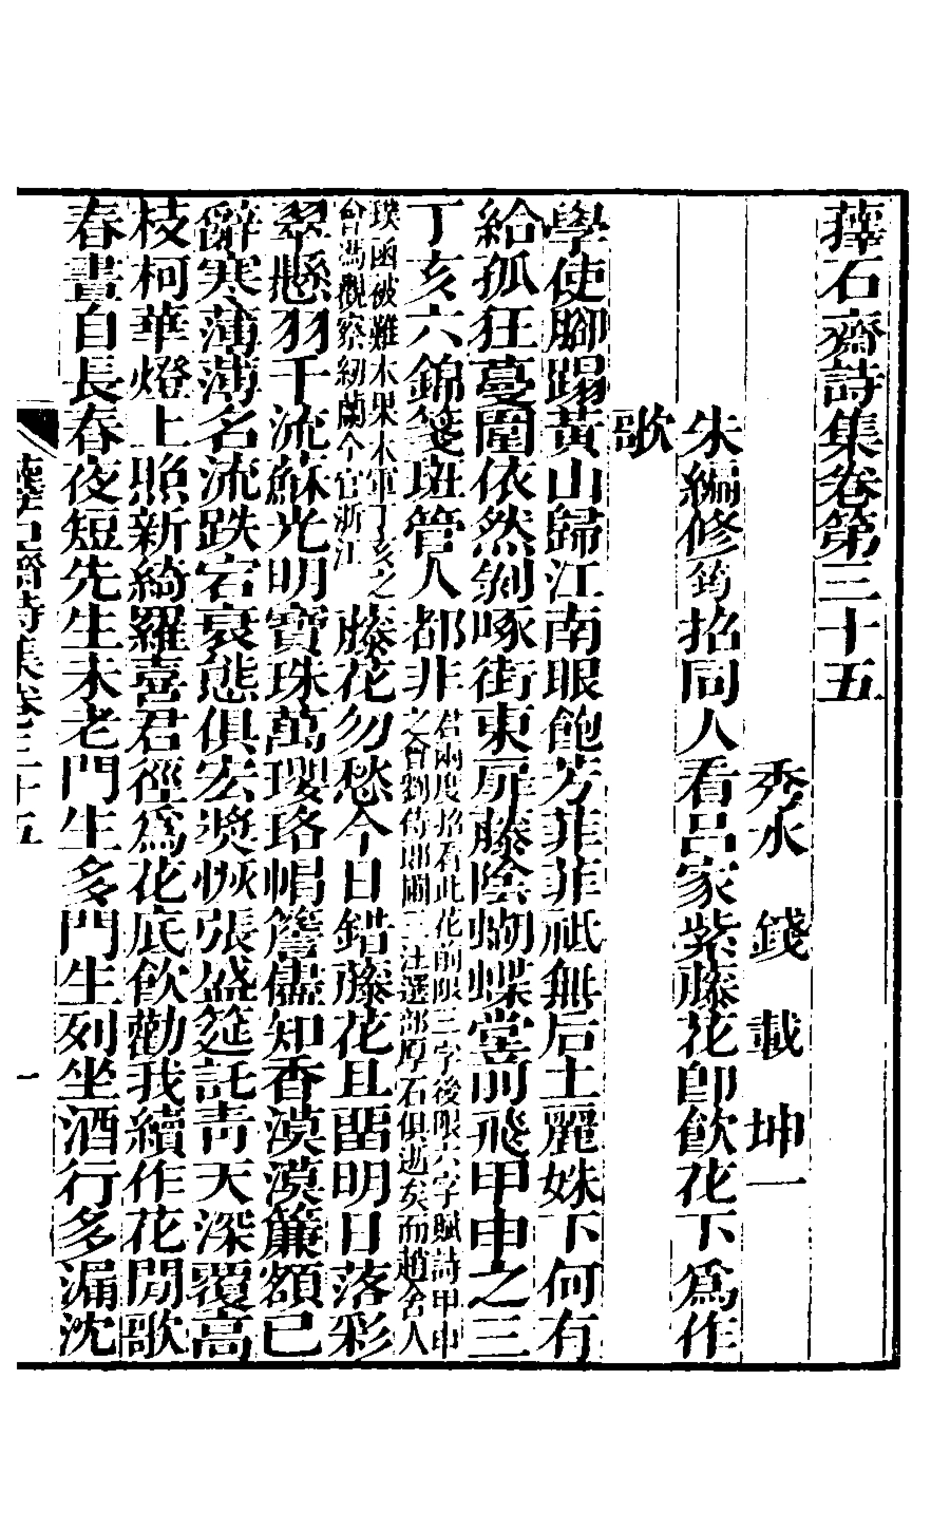 蘀石齋詩集卷第三十五
秀水 錢 載 坤一
朱編修筠招同人看呂家紫藤花卽飲花下爲作
歌
學使腳蹋黃山歸江南眼飽芳菲菲祗無后土麗姝下何有
給孤狂蔓圍依然剝啄街東扉藤陰蝴蝶堂前飛甲申之三
丁亥六錦箋斑管人都非君兩度招看此花前限三字後限六字賦詩甲申
之會劉侍郎圃三汪選部厚石俱逝矣而趙舍人
璞函被難木果木軍丁亥之
會馮觀察紉蘭今官浙江藤花勿愁今日錯藤花且畱明日落彩
翠懸羽千流蘇光明寶珠萬瓔珞帽簷儘知香漠漠簾額已
辭寒薄薄名流跌宕衰態俱宏奬恢張盛筵託靑天深覆高
枝柯華燈上照新綺羅喜君徑爲花底飮勸我續作花閒歌
春晝自長春夜短先生未老門生多門生列坐酒行多漏沈
蘀石齋詩集卷三十五
一